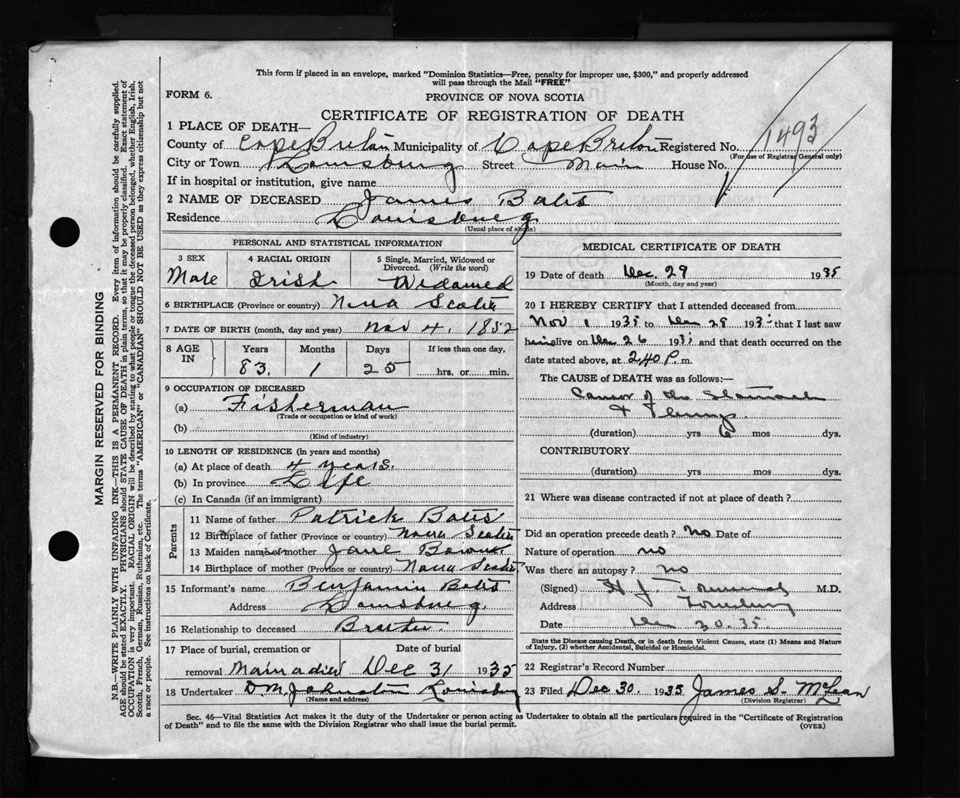 This form if placed in an envelope, marked "Dominion Statistics—Free, penalty for improper use, $300," and properly addressed
will pass through the Mail "FREE"
FORM 6.
PROVINCE OF NOVA SCOTIA
CERTIFICATE OF REGISTRATION OF DEATH
1493
1 PLACE OF DEATH—
County of Cape Breton Municipality of Cape Breton Registered No.
(For use of Registrar General only)
City or Town Louisburg Street Main House No.
If in hospital or institution, give name
2 NAME OF DECEASED James Bates
Residence Louisburg
(Usual place of abode)
PERSONAL AND STATISTICAL INFORMATION
3 SEX 4 RACIAL ORIGIN 5 Single, Married, Widowed or Divorced. (Write the word)
Male Irish Widowed
6 BIRTHPLACE (Province or country) Nova Scotia
7 DATE OF BIRTH (month, day and year) Nov 4. 1852
8 AGE IN Years Months Days If less than one day,
83. 1 25 hrs. or min.
9 OCCUPATION OF DECEASED
(a) Fisherman
(Trade or occupation or kind of work)
(b)
(Kind of industry)
10 LENGTH OF RESIDENCE (In years and months)
(a) At place of death 4 years.
(b) In province Life
(c) In Canada (if an immigrant)
Parents
11 Name of father Patrick Bates
12 Birthplace of father (Province or country) Nova Scotia
13 Maiden name of mother Jane
14 Birthplace of mother (Province or country) Nova Scotia
15 Informant's name Benjamin Bates
Address Louisburg.
16 Relationship to deceased Brother
17 Place of burial, cremation or Date of burial
removal Mainadieu Dec 31 1935
18 Undertaker D.M. Johnston Louisburg
(Name and address)
MEDICAL CERTIFICATE OF DEATH
19 Date of death Dec 29 1935
(Month, day and year)
20 I HEREBY CERTIFY that I attended deceased from
Nov 1 1935 to Dec 29 1935 that I last saw
him alive on Dec 26 1935 and that death occurred on the
date stated above, at 2 40 P. m.
The CAUSE of DEATH was as follows:—
Cancer of the Stomach
(duration) yrs 6 mos dys.
CONTRIBUTORY
(duration) yrs. mos. dys.
21 Where was disease contracted if not at place of death?
Did an operation precede death? no Date of
Nature of operation no
Was there an autopsy? no
(Signed) H J. M.D.
Address Louisburg
Date Dec 30. 35.
State the Disease causing Death, or in death from Violent Causes, state (1) Means and Nature
of Injury, and (2) whether Accidental, Suicidal or Homicidal.
22 Registrar's Record Number
23 Filed Dec 30. 1935 James S. McLean
(Division Registrar)
Sec. 46—Vital Statistics Act makes it the duty of the Undertaker or person acting as Undertaker to obtain all the particulars required in the "Certificate of Registration
of Death" and to file the same with the Division Registrar who shall issue the burial permit.
(OVER)
MARGIN RESERVED FOR BINDING
N.B.—WRITE PLAINLY WITH UNFADING INK—THIS IS A PERMANENT RECORD. Every item of information should be carefully supplied.
AGE should be stated EXACTLY. PHYSICIANS should STATE CAUSE OF DEATH in plain terms, so that it may be properly classified. Exact statement of
OCCUPATION is very important. RACIAL ORIGIN will be described by stating to what people or tongue the deceased person belonged, whether English, Irish,
Scotch, French, German, Russian, Ruthenian, etc. The terms "AMERICAN" or "CANADIAN" SHOULD NOT BE USED as they express citizenship but not
a race or people. See instructions on back of Certificate.